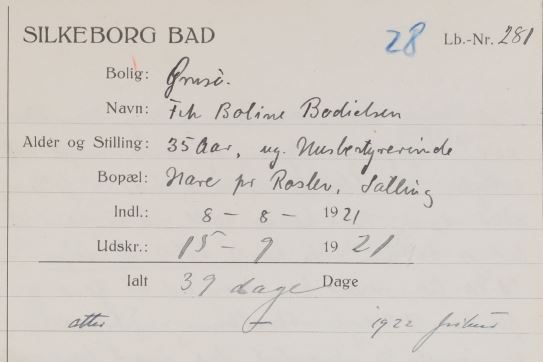 SILKEBORG BAD 28 Lb.-Nr. 281
Bolig: Grusö.
Navn: Frk Boline Bodielsen
Alder og Stilling: 35 Aar, ug. Husbestyrerinde
Bopæl: Hare pr Roslev, Salling
Indl.: 8 - 8 - 1921
Udskr.: 15 - 9 1921
Ialt 39 dage Dage
atter - 1922